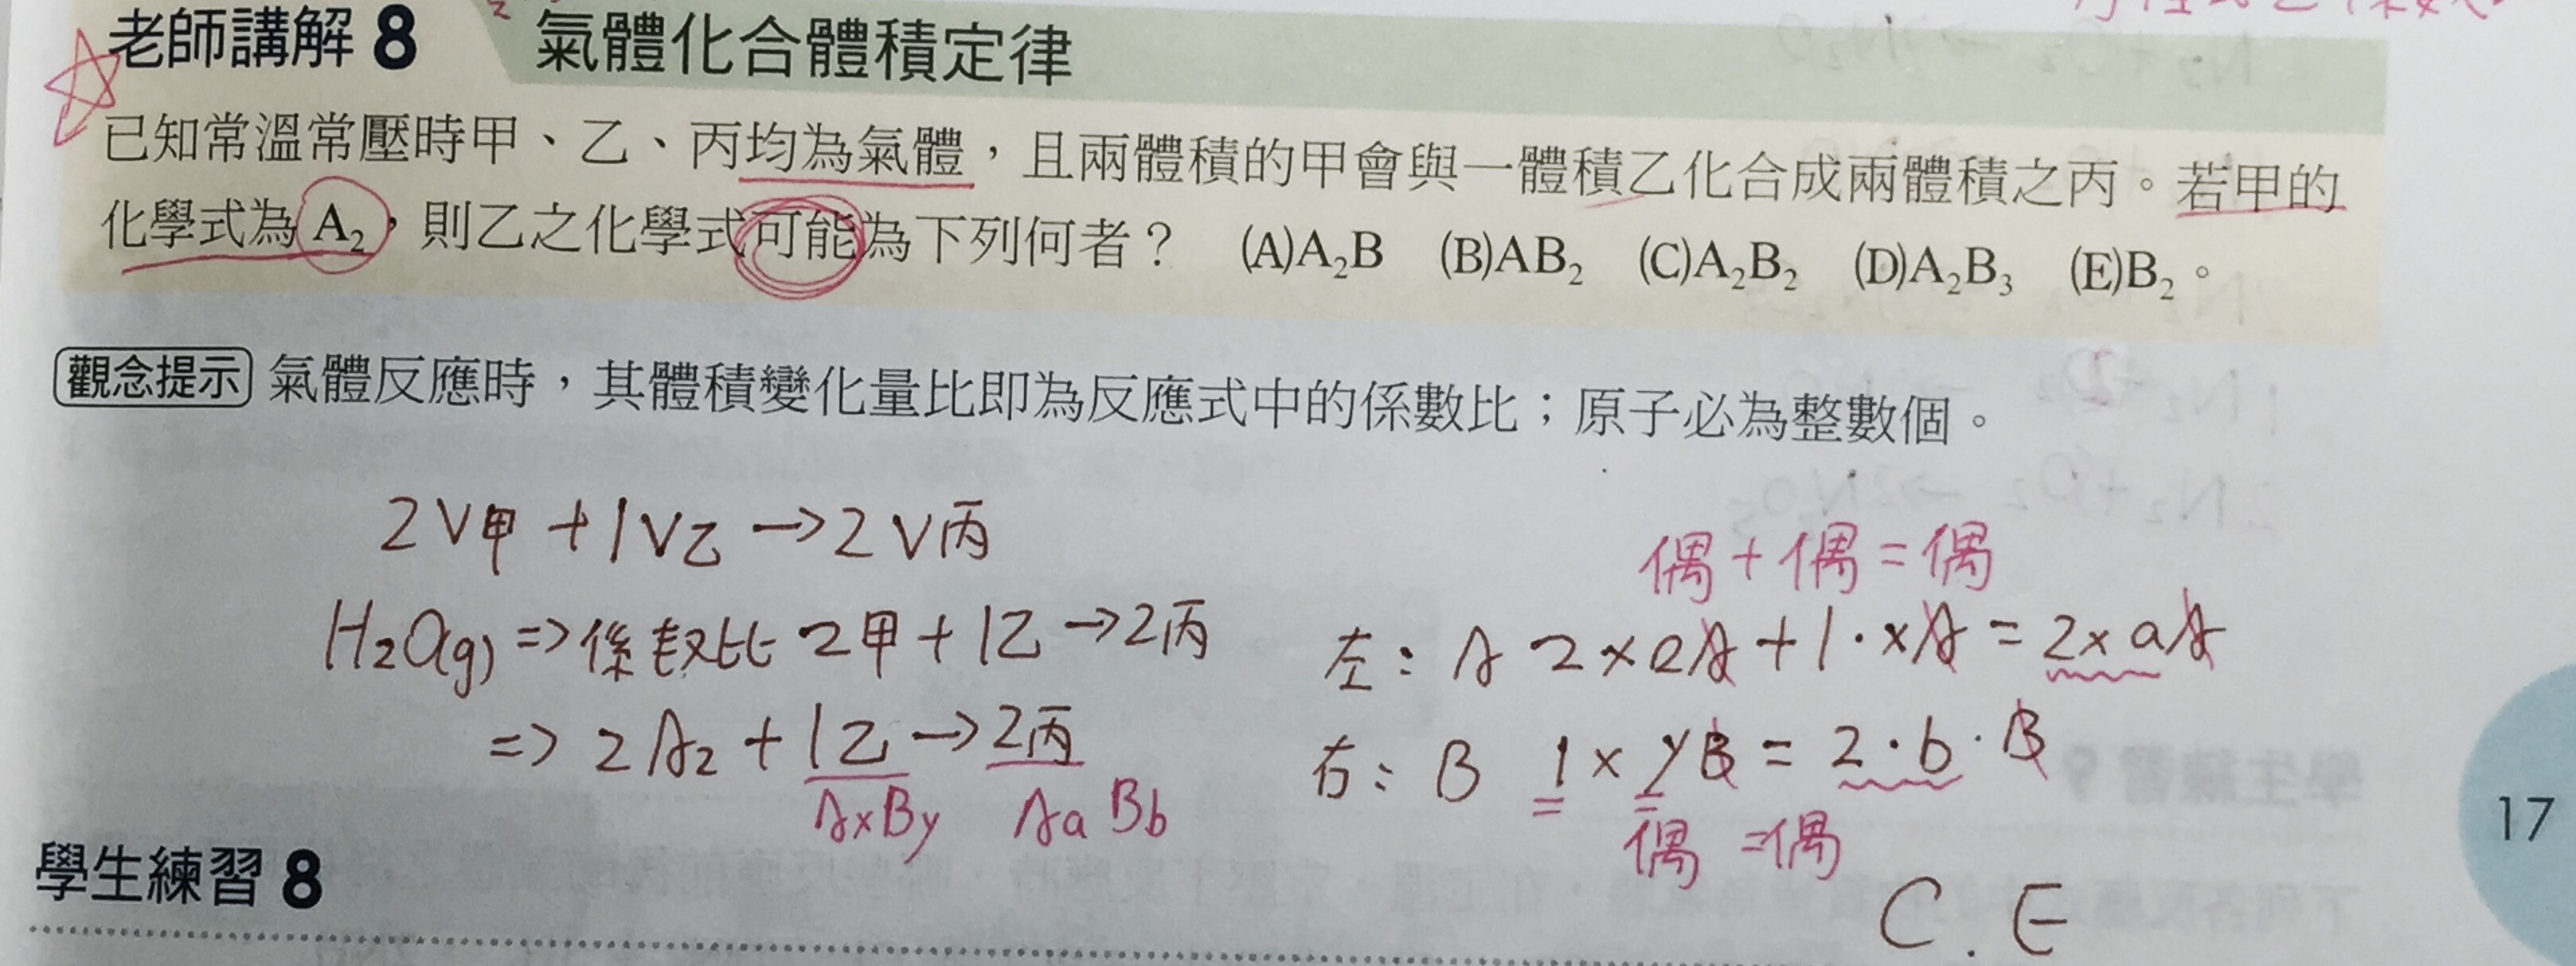 老師講解 8 氣體化合體積定律
已知常溫常壓時甲、乙、丙均為氣體，且兩體積的甲會與一體積乙化合成兩體積之丙。若甲的
化學式為 A₂，則乙之化學式可能為下列何者？ (A)A₂B (B)AB₂ (C)A₂B₂ (D)A₂B₃ (E)B₂。
觀念提示 氣體反應時，其體積變化量比即為反應式中的係數比；原子必為整數個。
2V甲 + 1V乙 → 2V丙
偶 + 偶 = 偶
H₂O(g) => 係數比 2甲 + 1乙 → 2丙
左： A 2×2A + 1·xA = 2×aA
=> 2A₂ + 1乙 → 2丙
AxBy AaBb
右： B 1×yB = 2·b·B
偶 =偶
C. E
學生練習 8
17